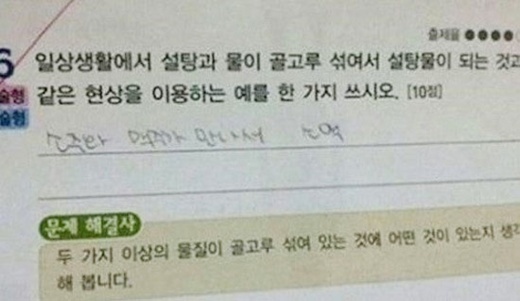 출제율 ●●●●
6 일상생활에서 설탕과 물이 골고루 섞여서 설탕물이 되는 것과
술형 같은 현상을 이용하는 예를 한 가지 쓰시오. [10점]
술형
소주와 맥주가 만나서 소맥
문제 해결사
두 가지 이상의 물질이 골고루 섞여 있는 것에 어떤 것이 있는지 생각
해 봅니다.